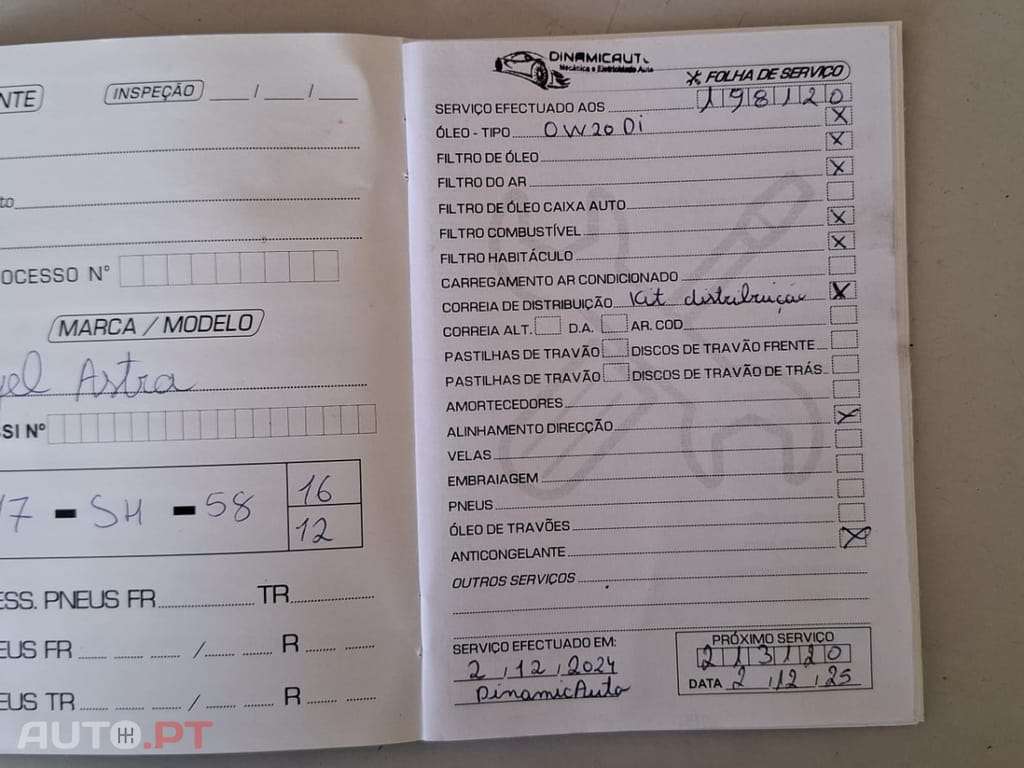 NTE
INSPEÇÃO / /
to
OCESSO Nº
MARCA / MODELO
el Astra
SSI Nº
7 - SH - 58
16
12
ESS. PNEUS FR TR
EUS FR / R
EUS TR / R
DINAMICAUTO
Mecânica e Eletricidade Auto
FOLHA DE SERVIÇO
SERVIÇO EFECTUADO AOS 198120
ÓLEO - TIPO 0W20 Di X
FILTRO DE ÓLEO X
FILTRO DO AR X
FILTRO DE ÓLEO CAIXA AUTO
FILTRO COMBUSTÍVEL X
FILTRO HABITÁCULO X
CARREGAMENTO AR CONDICIONADO
CORREIA DE DISTRIBUIÇÃO Kit distribuição X
CORREIA ALT. D.A. AR. COD
PASTILHAS DE TRAVÃO DISCOS DE TRAVÃO FRENTE
PASTILHAS DE TRAVÃO DISCOS DE TRAVÃO DE TRÁS
AMORTECEDORES
ALINHAMENTO DIRECÇÃO X
VELAS
EMBRAIAGEM
PNEUS
ÓLEO DE TRAVÕES
ANTICONGELANTE X
OUTROS SERVIÇOS
SERVIÇO EFECTUADO EM:
2 / 12 / 2024
DinamicAuto
PRÓXIMO SERVIÇO
213120
DATA 2 / 12 / 25
AUTO.PT